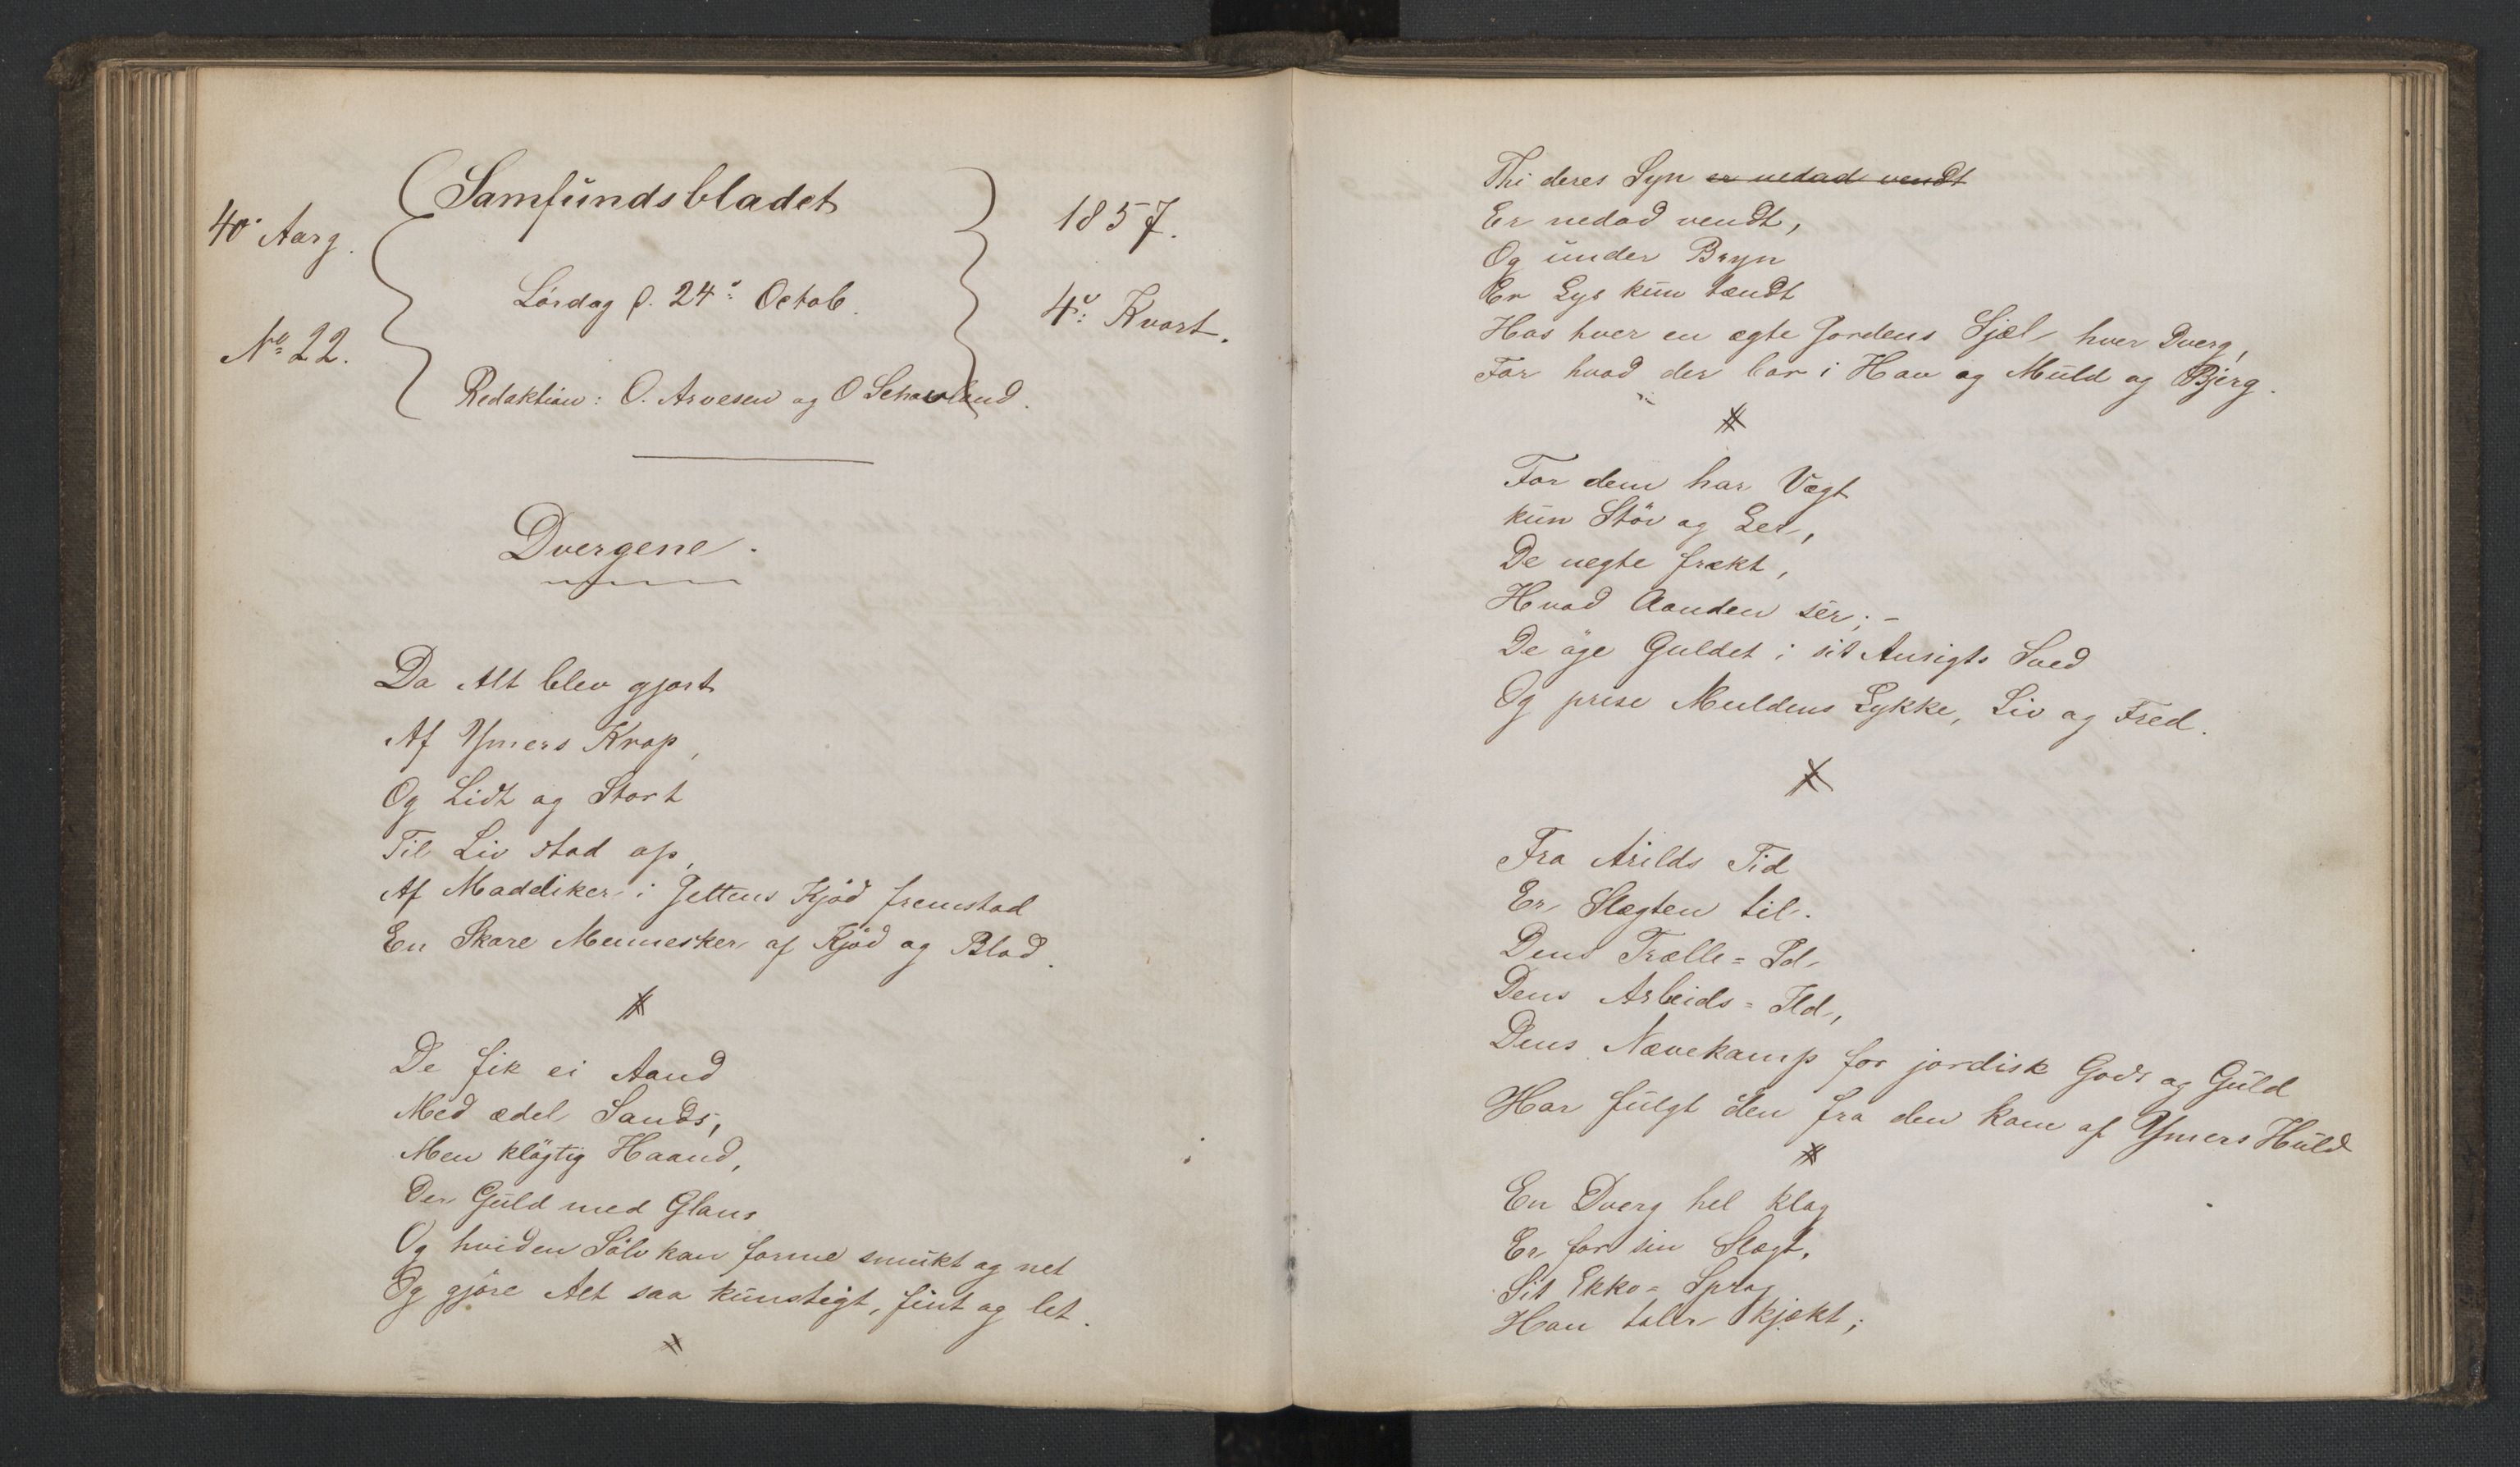 Samfundsbladet
40de Aarg.
1857.
Lørdag d. 24de Octob.
4de Kvart.
No 22.
Redaktion: O. Arvesen og O Schavland.
Dvergene.
Da Alt blev gjort
Af Ymers Krop,
Og Lidt og Stort
Til Liv stod op,
Af Maddiker i Jettens Kjød fremstod
En Skare Mennesker af Kjød og Blod.
De fik ei Aand
Med ædel Sands,
Men kløgtig Haand,
Der Guld med Glans
Og hviden Sølv kan forme smukt og net
Og gjøre Alt saa kunstigt, fint og let.
Thi deres Syn er nedad vendt
Er nedad vendt,
Og under Bryn
Er Lys kun tændt
Hos hver en ægte Jordens Sjæl, hver Dverg,
For hvad der bor i Hav og Muld og Bjerg.
For dem har Vægt
kun Støv og Ler,
De negte frækt,
Hvad Aanden sér; -
De øge Guldet i sit Ansigts Sved
Og prise Muldens Lykke, Liv og Fred.
Fra Arilds Tid
Er Slægten til.
Dens Trælle-Id,
Dens Arbeids-Ild,
Dens Nævekamp for jordisk Gods og Guld
Har fulgt den fra den kom af Ymers Huld
En Dverg hel klog
Er for sin Slægt,
Sit Ekko-Sprog
Han taler kjækt;